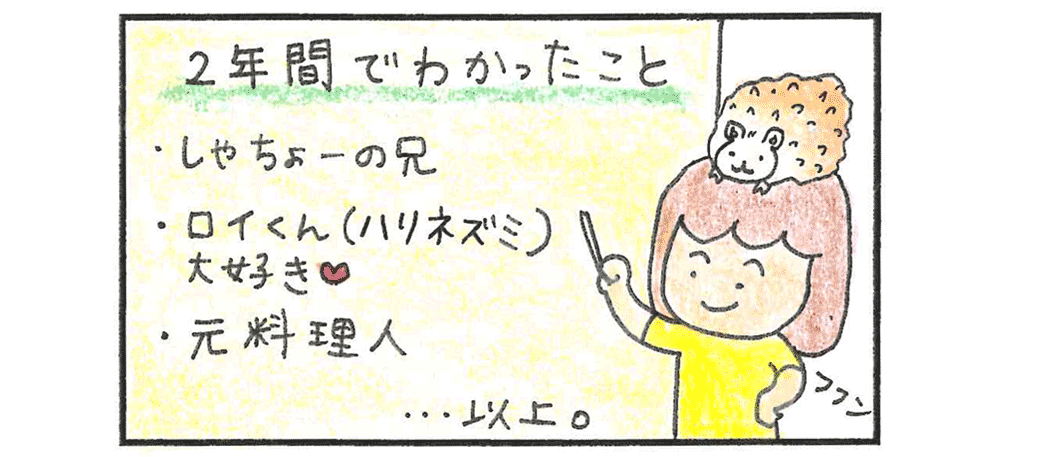 2年間でわかったこと
・しゃちょーの兄
・ロイくん(ハリネズミ)
大好き
・元料理人
…以上。
フフン